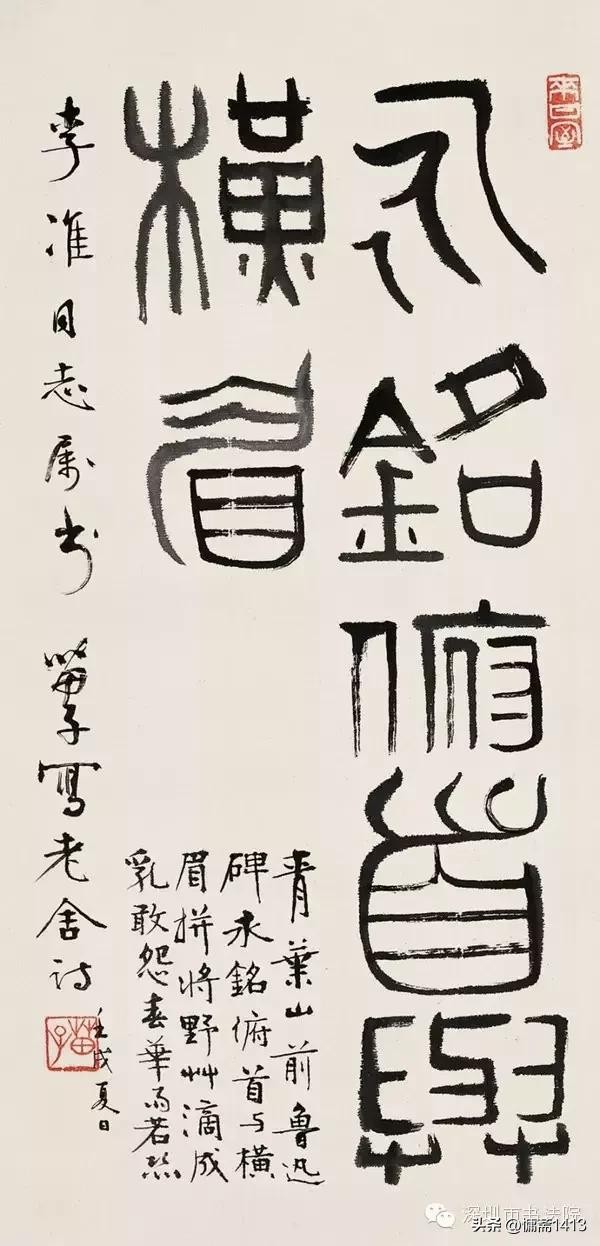 永銘俯首與
橫眉
青葉山前魯迅
碑永銘俯首与橫
眉拼將野艸滴成
乳敢怨春華雨若絲
李准同志属书 苗子寫老舍詩
壬戌夏日
苗子
深圳市书法院
头条 @傭斋1413